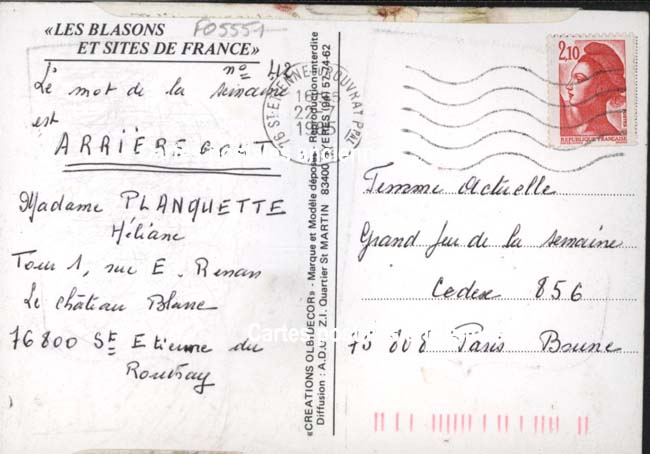 FO5551
«LES BLASONS
ET SITES DE FRANCE»
n° 42
Le mot de la semaine
est
ARRIÈRE GOUT
Madame PLANQUETTE
Héliane
Tour 1, rue E. Renan
Le château Blanc
76800 St Etienne du
Rouvray
«CREATIONS OLBIDECOR» - Marque et Modèle déposés - Reproduction interdite
Diffusion : A.D.C. Z.I. Quartier St MARTIN 83400 HYERES (94) 57-74-62
76 ST ETIENNE DU ROUVRAY PPAL
2,10
REPUBLIQUE FRANÇAISE
Femme Actuelle
Grand Jeu de la semaine
Cedex 856
75808 Paris Brune